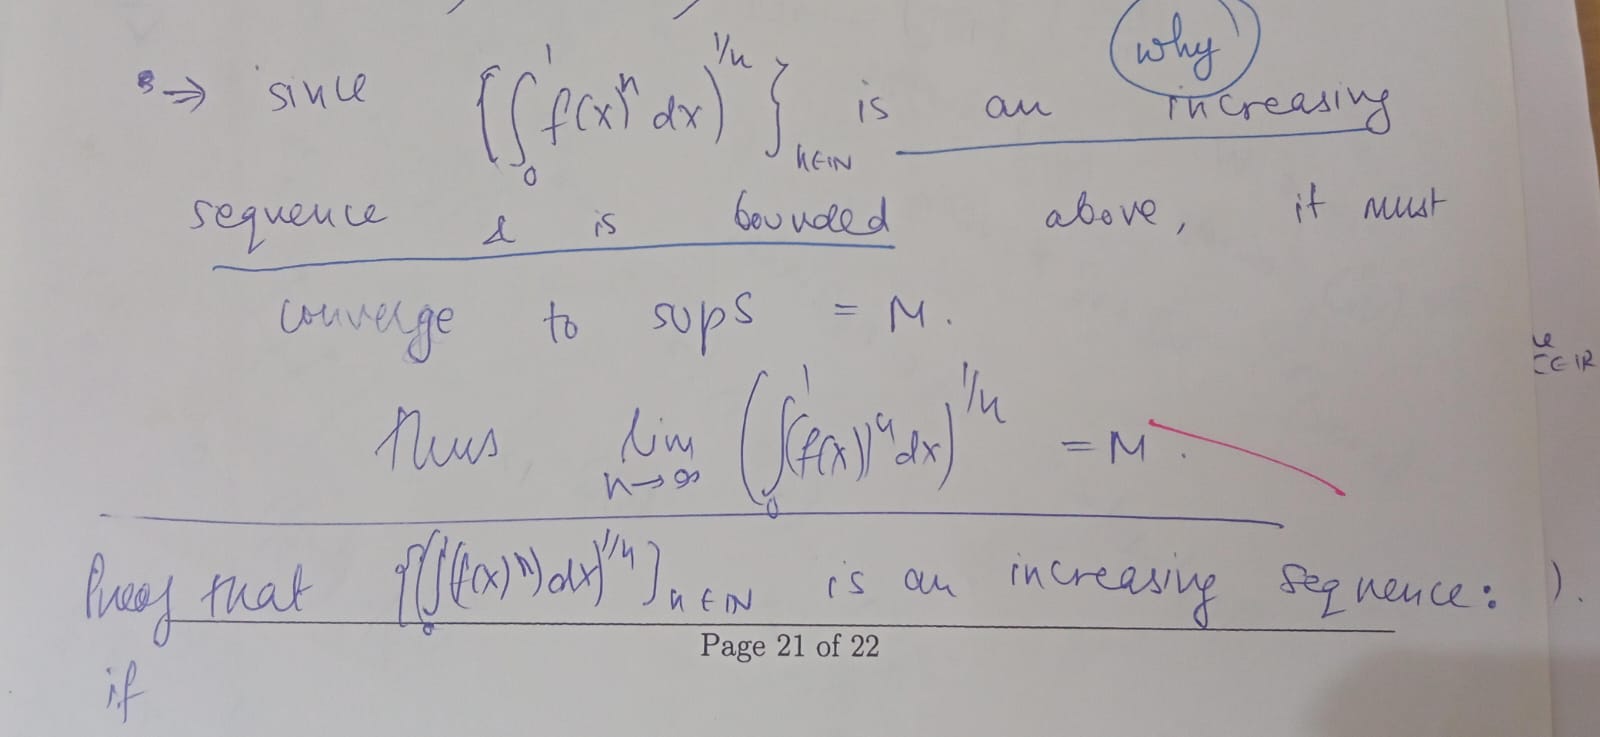 why
⇒ since {(∫₀¹ f(x)ⁿ dx)^{1/n}}_{n∈ℕ} is an increasing
sequence & is bounded above, it must
converge to sup S = M.
∈ IR
thus lim_{n→∞} (∫₀¹ (f(x))ⁿ dx)^{1/n} = M.
Proof that {(∫₀¹ (f(x)ⁿ) dx)^{1/n}}_{n∈ℕ} is an increasing sequence: ).
Page 21 of 22
if